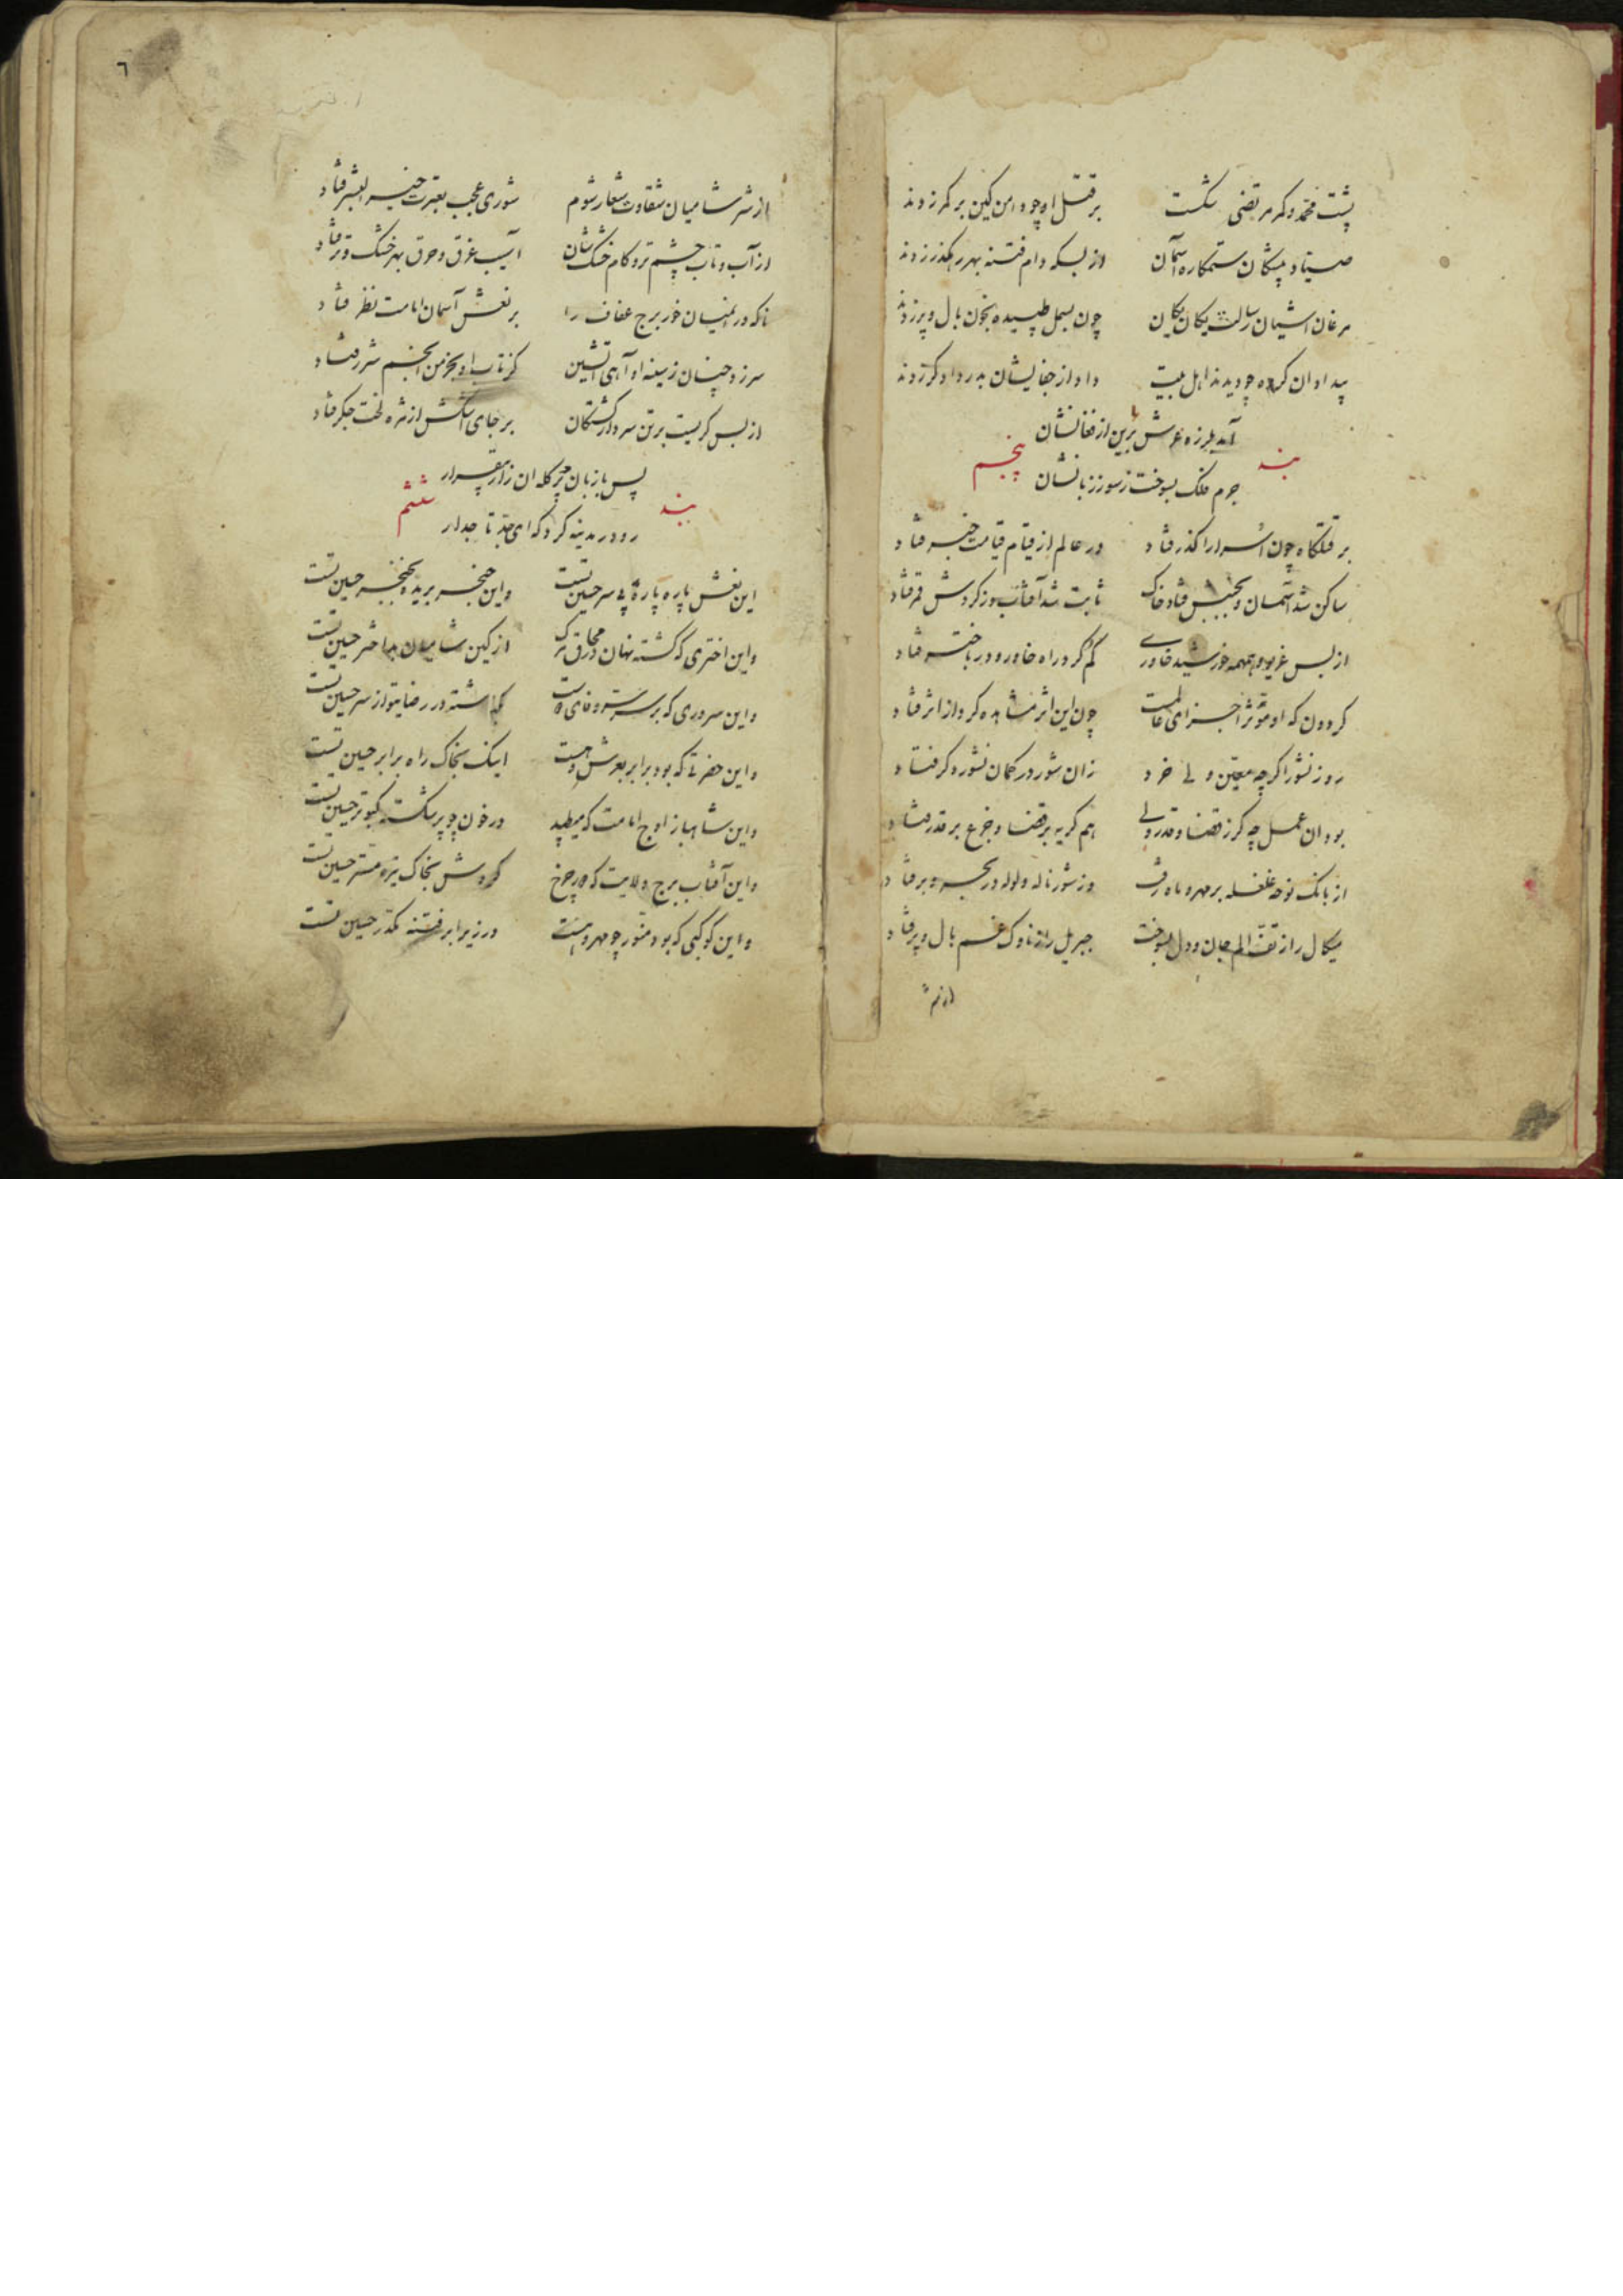 پشت محمد و کمر مرتضی شکست بر قتل او چو دامن کین بر کمر زدند
صیاد پیشگان ستمکاره آسمان از بسکه دام فتنه بهر رهگذر زدند
مرغان آشیان رسالت یکان یکان چون بسمل طپیده بخون بال و پر زدند
بیداد ان گروه چو دیدند اهل بیت داد از جفایشان بدر دادگر زدند
آمد بلرزه عرش برین از فغانشان
بند پنجم
جرم فلک بسوخت ز سوز زبانشان
بر قتلگاه چون اسرا را گذر فتاد در عالم از قیام قیامت خبر فتاد
ساکن شد آسمان و بجنبش فتاد خاک ثابت شد آفتاب و ز گردش قمر فتاد
از بس غریو و همهمه خورشید خاوری گم کرد راه خاور و در باختر فتاد
گردون که او مؤثر اجزای عالمست چون این اثر مشاهده کرد از اثر فتاد
روز نشور اگرچه معین ولی خرد زان شور در گمان نشور دگر فتاد
بود ان عمل چه گر ز قضا و قدر ولی هم گریه بر قضا و جزع بر قدر فتاد
از بانک نوحه غلغله بر مهر و ماه رفت وز شور ناله ولوله در بحر و بر فتاد
میکال را ز تف الم جان و دل بسوخت جبریل را ز ناوک غم بال و پر فتاد
از شر
٦
از شر شامیان شقاوت شعار شوم شوری عجب بعترت خیر البشر فتاد
از آب و تاب چشم تر و کام خشکشان آسیب غرق و حرق بهر خشک و تر فتاد
ناگه در انمیان خور برج عفاف را بر نعش آسمان امامت نظر فتاد
سر زد چنان ز سینه او آهی آتشین کز تاب او بخرمن انجم شرر فتاد
از بس گریست بر تن سردار کشتگان بر جای اشکش از مژه لخت جگر فتاد
پس با زبان پر گله ان زار بیقرار
بند ششم
رو در مدینه کرد که ای جد تاجدار
این نعش پاره پارهٔ بی سر حسین تست واین حنجر بریده بخنجر حسین تست
واین اختری که گشته نهان در محاق مرگ از کین شامیان بد اختر حسین تست
واین سروری که بر سر وفای دوست بگذاشته در رضای تو از سر حسین تست
واین حضرتی که بود برابر بعرش دوست اینک بخاک راه برابر حسین تست
واین شاهباز اوج امامت که میطپد در خون چو پر شکسته کبوتر حسین تست
واین آفتاب برج ولایت که دور چرخ کردش بخاک تیره مستر حسین تست
واین کوکبی که بود منور چو مهر و هست در زیر ابر فتنه مکدر حسین تست